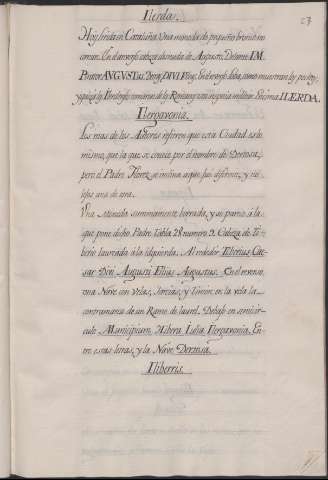 27
Ilerda.
Hoy Lerida en Cataluña. Una moneda de pequeño bronze en
contorn. En el anverso cabeza desnuda de Augusto. Delante IM.
Detras AVGVSTus. Deraj. DIVI Filius. En el reverso loba, como muestran los pechos,
y por los Ilerdenses comunes à los Romanos esta insignia militar. Encima ILERDA.
Ilergavonia.
Los mas de los Autores refieren que esta Ciudad es lo
mismo, que la que se conoce por el nombre de Dertosa,
pero el Padre Florez se inclina à que fue diferente, y no
lejos una de otra.
Una Moneda summamente borrada, y se parece à la
que pone dicho Padre Tabla 28 numero 9. Cabeza de Ti-
berio laureada à la izquierda. Al rededor Tiberius Cae-
sar Divi Augusti Filius Augustus. En el reverso
una Nave con Velas, Jarcias, y Timon: en la vela la
contramarca de un Ramo de laurel. Debajo en semicir-
culo Municipium Hibera Julia Ilergavonia. En-
tre estas letras, y la Nave Dertosa.
Iliberris.